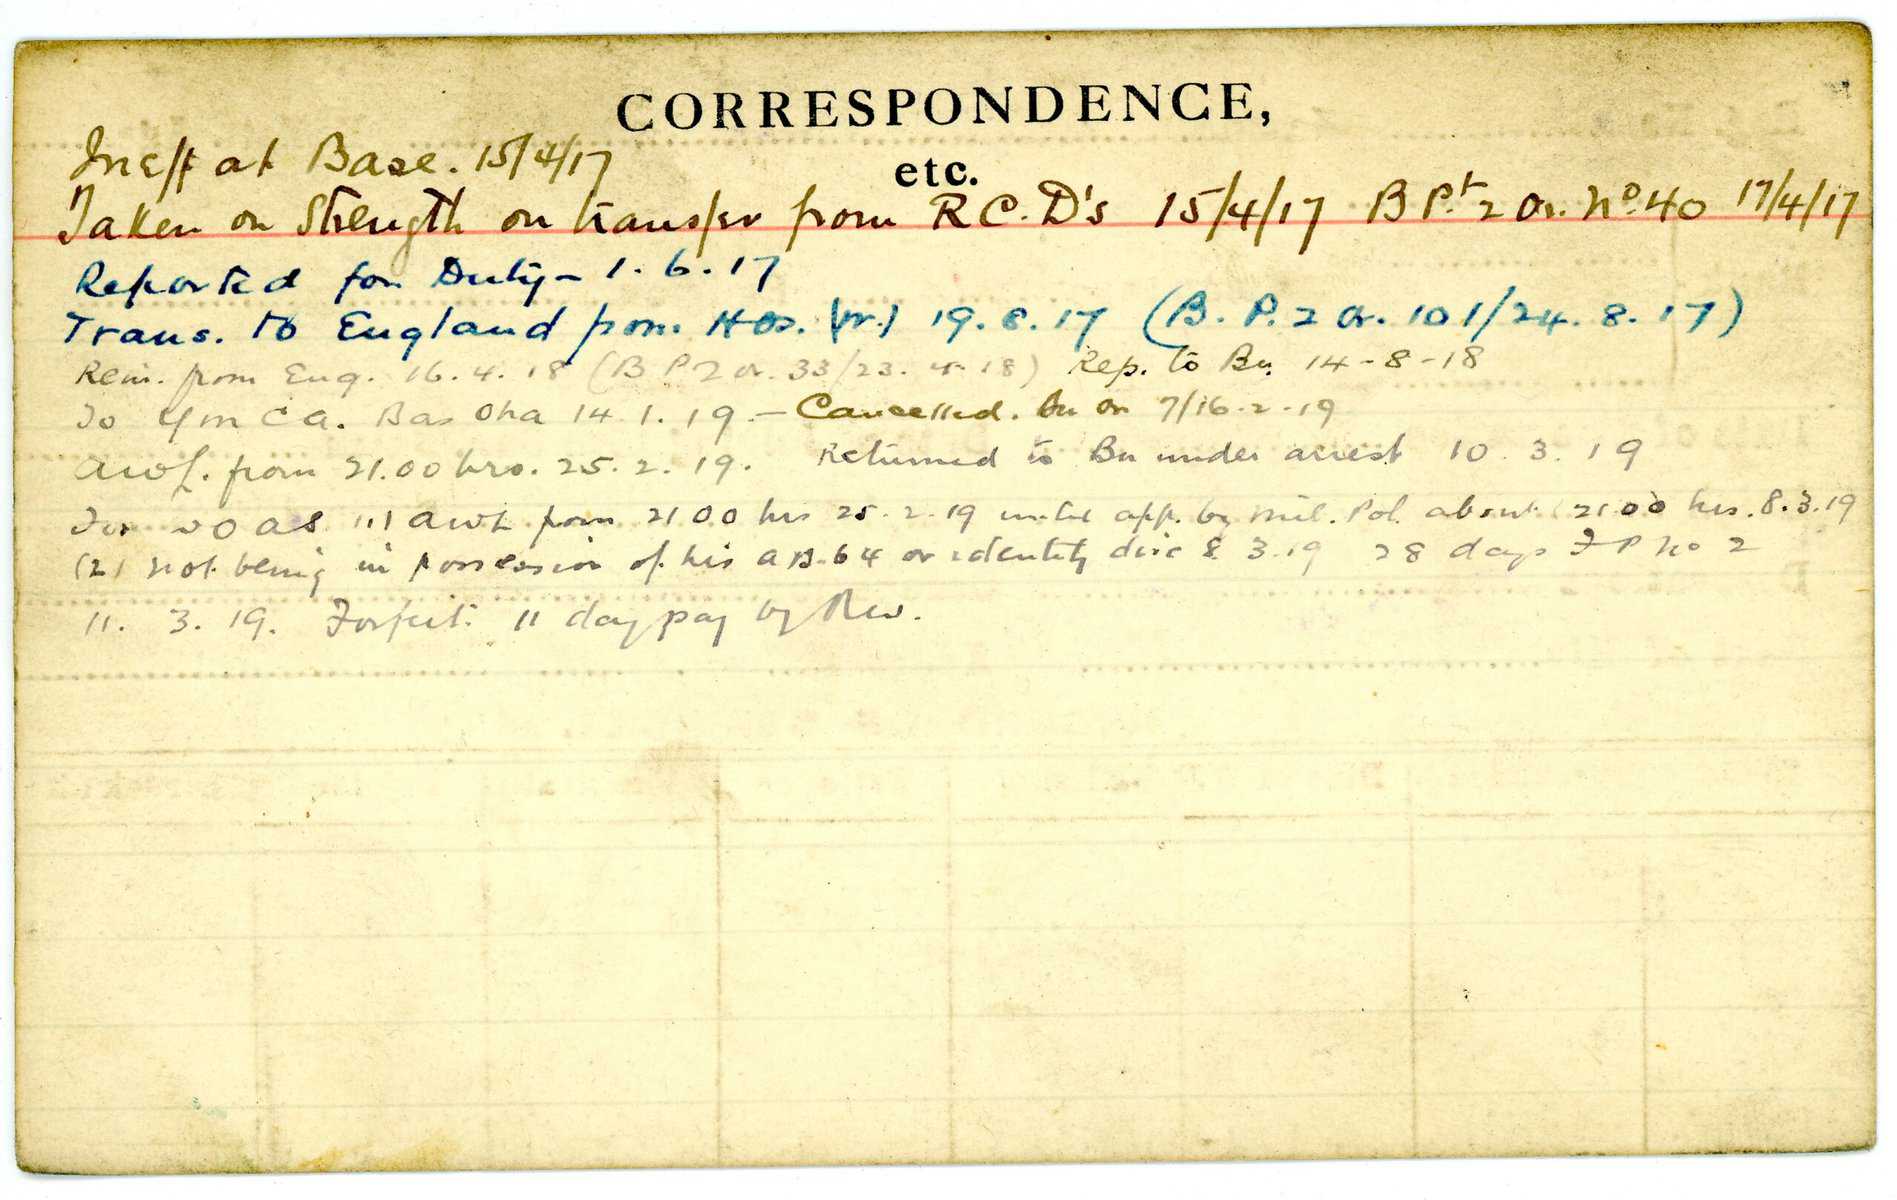 CORRESPONDENCE,
etc.
Ineff at Base. 15/4/17
Taken on Strength on transfer from R.C.D's 15/4/17 B Pt 2 Or. No. 40 17/4/17
Reported for Duty - 1.6.17
Trans. to England from Hos. 19.8.17 (B.P.2 Or. 101/24.8.17)
Rein. from Eng. 16.4.18 (B P 2 Or. 33/23.4.18) Rep. to Bn. 14-8-18
To YMCA. 14.1.19 - Cancelled. Bn Or 7/16-2-19
AWL. from 21.00 hrs. 25.2.19. Returned to Bn under arrest 10.3.19
AWL from 21 00 hrs 25.2.19 until app. by Mil. Pol. about 21.00 hrs. 8.3.19
(2) not being in possession of his AB.64 or identity disc 8.3.19 28 days FP No 2
11.3.19. Forfeit. 11 day pay by RW.